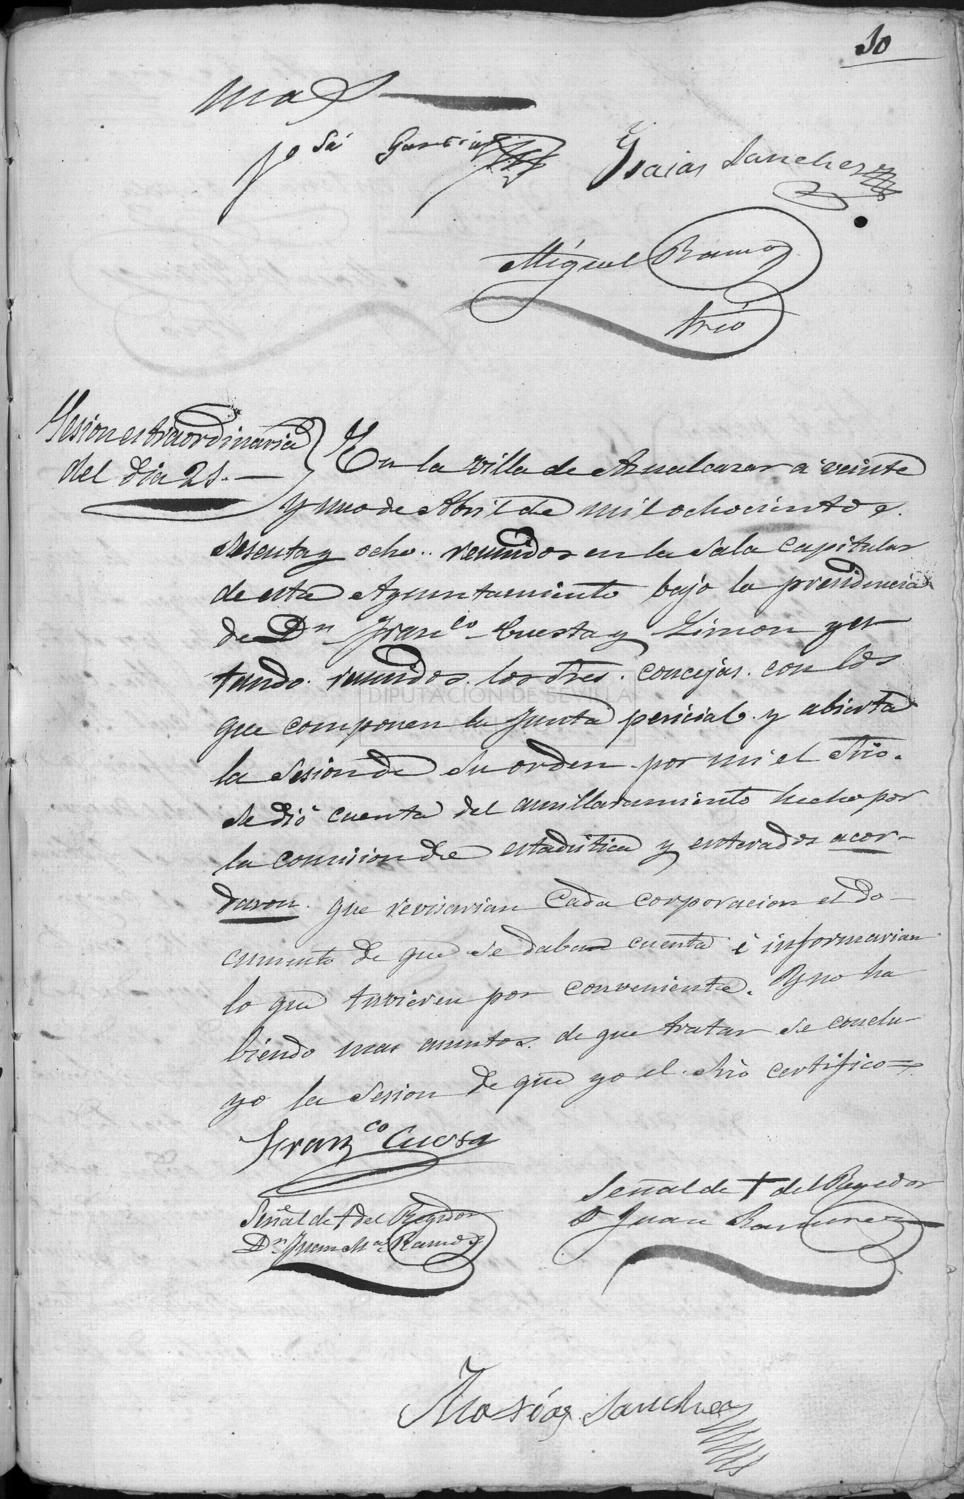 10
José García
Isaias Sanchez
Miguel Ramos
Srio
Sesion estraordinaria
del dia 21.
En la villa de Aznalcazar á veinte
y uno de Abril de mil ochocientos
sesenta y ocho.. reunidos en la sala capitular
de esta Ayuntamiento bajo la presidencia
de Dn Franco Cuesta y Limon y es
tando reunidos los Sres. concejas. con los
que componen la Junta pericial y abierta
la Sesion de su orden por mi el Srio.
se dió cuenta del amillaramiento hecho por
la comision de estadistica y enterados acor-
daron que revisarian cada corporacion el do-
cumento de que se daba cuenta é informarian
lo que tuvieren por conveniente. Y no ha
biendo mas asuntos de que tratar se conclu-
yo la Sesion de que yo el Srio certifico=
Franco Cuesta
Señal de + del Regidor
Dn Juan Ma Ramos
Señal de + del Regidor
D Juan Ramirez
Sanchez
DIPUTACIÓN DE SEVILLA